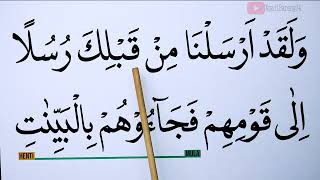 وَلَقَدْ اَرْسَلْنَا مِنْ قَبْلِكَ رُسُلًا
اِلٰى قَوْمِهِمْ فَجَآءُوْهُمْ بِالْبَيِّنٰتِ
HENTI
MULA